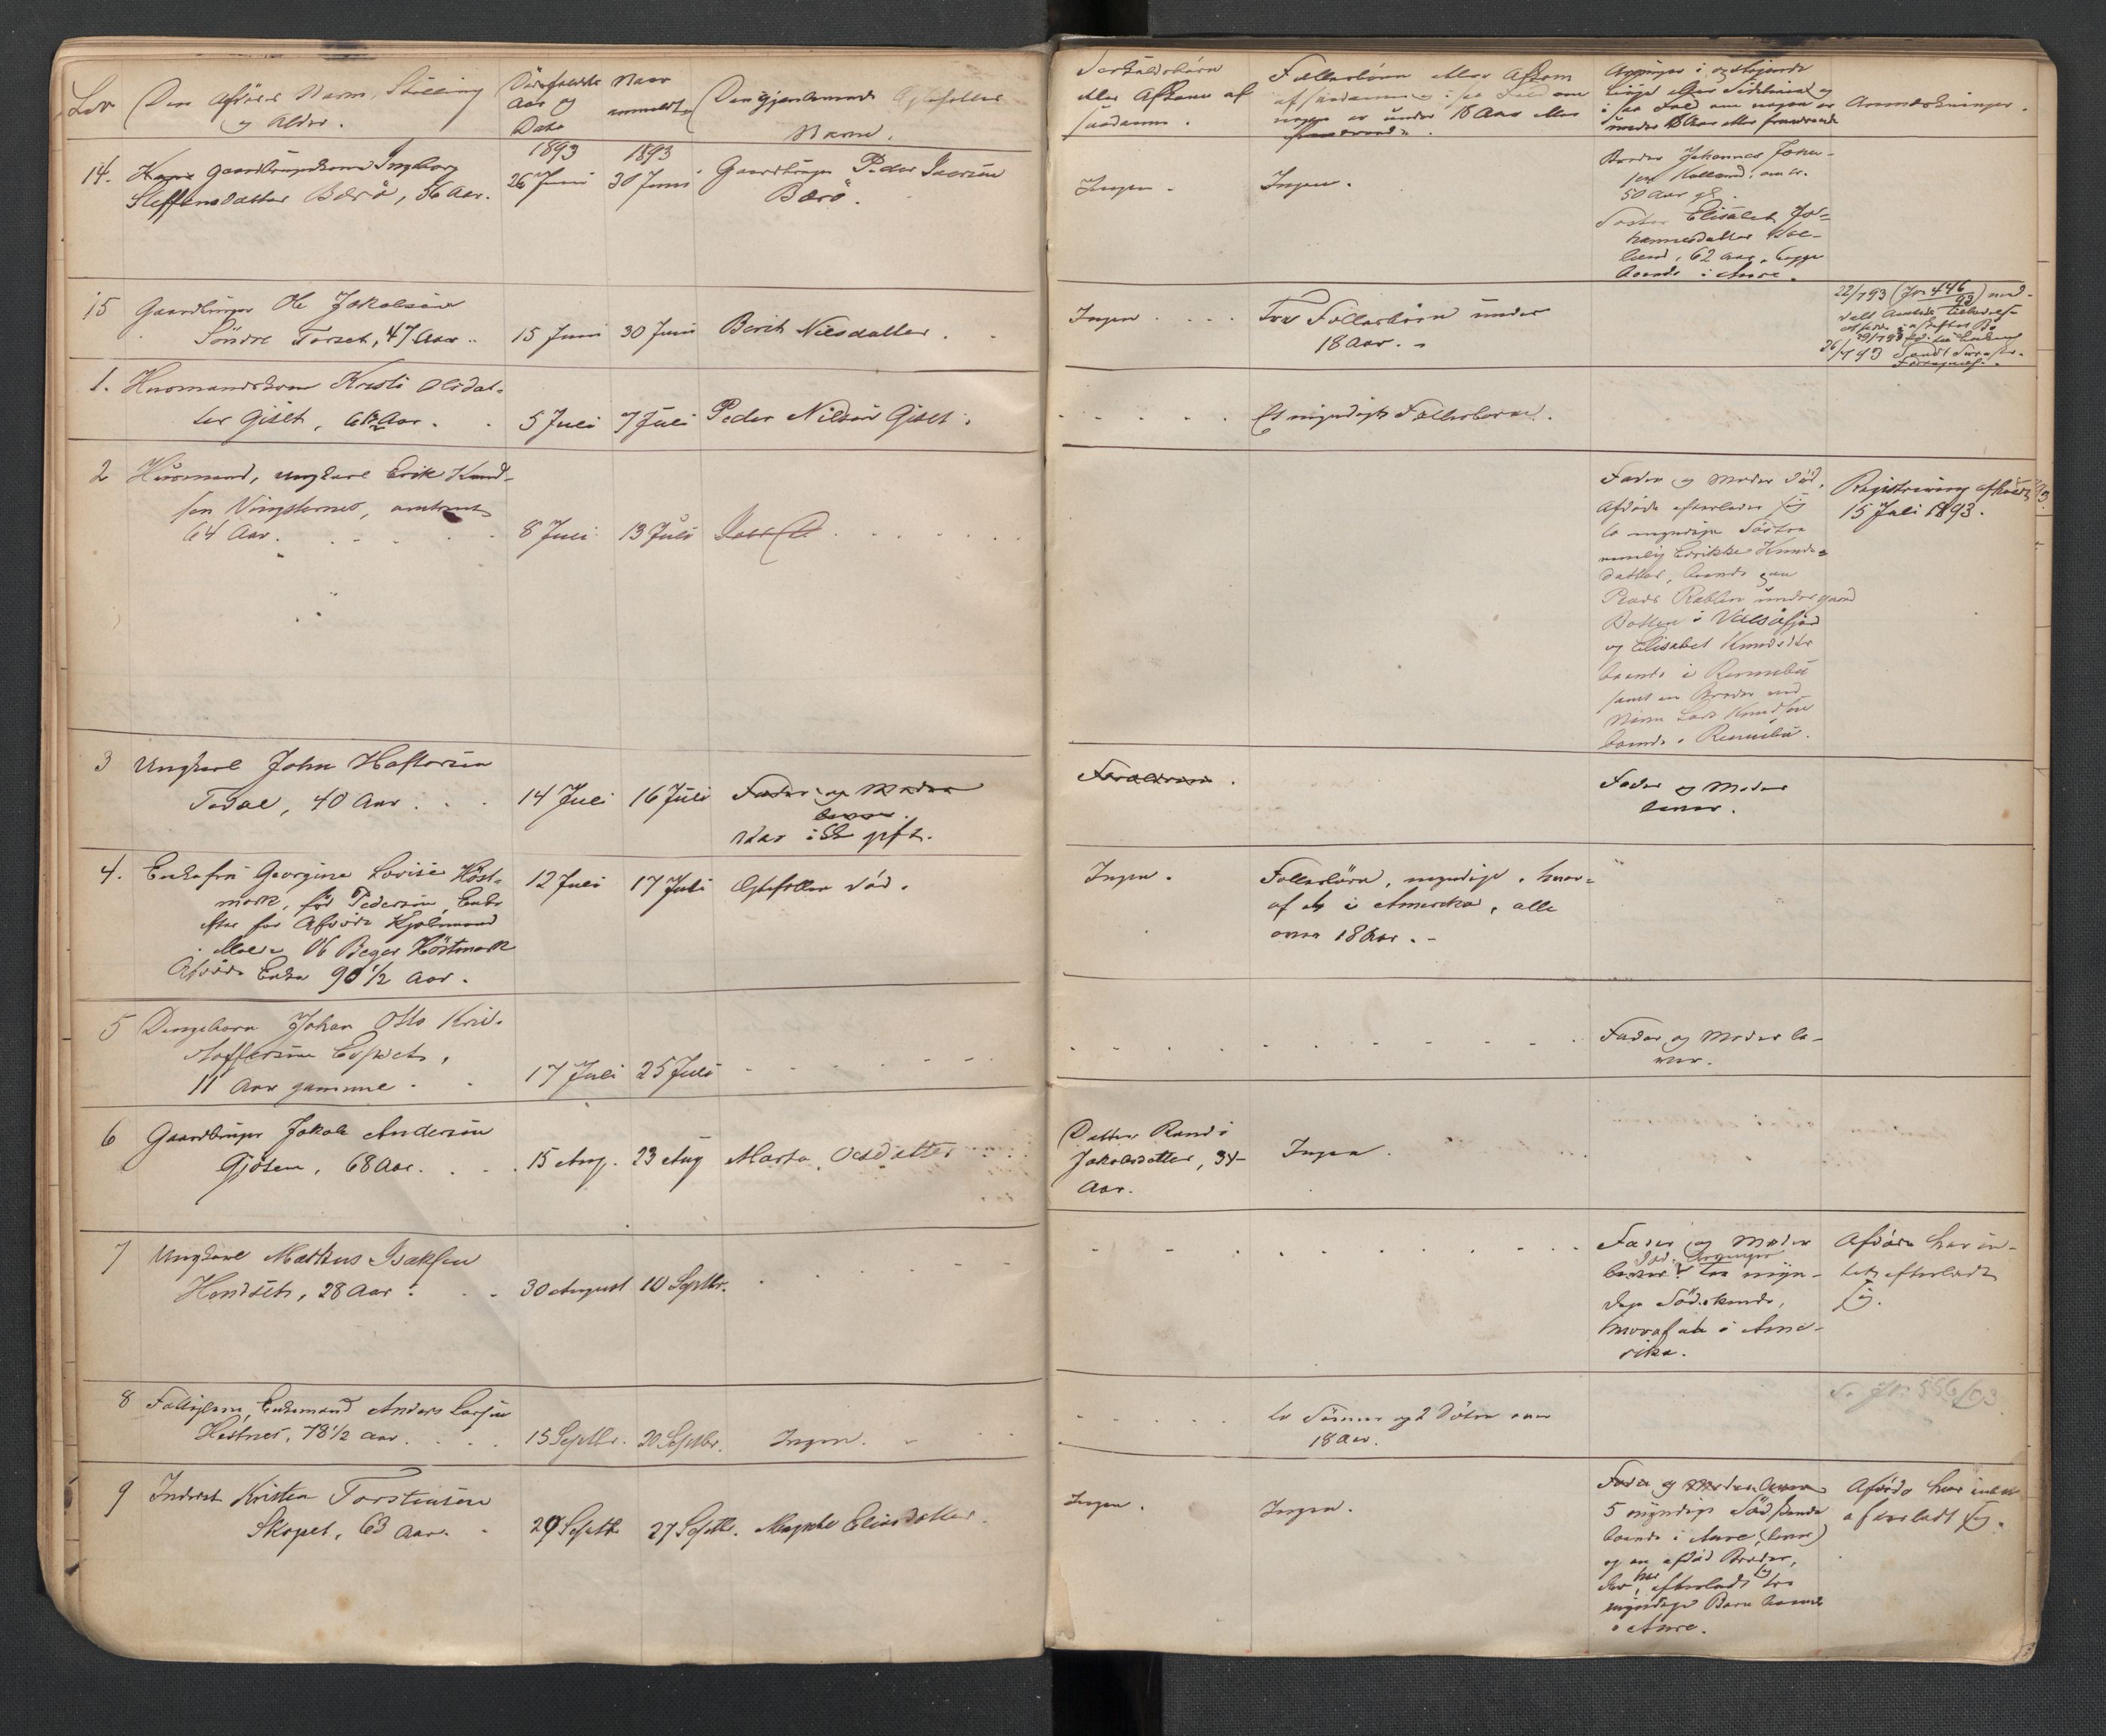 Den Afdødes Navn, Stilling
og Alder.
Dødsfaldets
Aar og
Dato
Naar
anmeldt
Den gjenlevende Ægtefælles
Navn.
Særkuldsbørn
eller Afkom af
saadanne.
Fællesbørn eller Afkom
af saadanne og i saa Fald om
nogen er under 18 Aar eller
fraværende.
Arvinger i opstigende
Linje eller Sidelinie og
i saa Fald om nogen er
under 18 Aar eller fraværende
Anmærkninger.
1893
1893
14. Gaardbrugerkone Ingeborg
Steffensdatter Bærø, 56 Aar.
26 Juni
30 Juni
Gaardbruger Peder Iversen
Bærö.
Ingen
Ingen.
Broder Johannes Johan-
50 Aar gl.
Søster Elisabet Jo-
hannesdatter
62 Aar, begge
boende i Aure.
15 Gaardbruger Ole Jakobsen
Söndre Torset, 47 Aar
15 Juni
30 Juni
Berit Nilsdatter
Ingen
Fællesbörn under
18 Aar.
22/7 93 (Jr 446/93) med-
1. Husmandskone Kristi Olsdat-
ter Gislt,
5 Juli
7 Juli
Peder Nilsen Gislt
Et myndigt Fællesbarn.
2 Husmand, ungkarl Erik Knud-
sen Vingsternes, omtrent
64 Aar.
8 Juli
13 Juli
Fader og Moder død.
Afdøde efterlader sig
to myndige Søstre
nemlig Erikke Knuds-
datter, boende paa
Plads under gaard
Botten i Valsøfjord
og Elisabet Knudsdtr
boende i Rennebu
samt en Broder ved
Navn Lars Knudsen
boende i Rennebu.
Registrering afholdt
15 Juli 1893.
3 Ungkarl John Haftorsen
Todal, 40 Aar
14 Juli
16 Juli
Fader og Moder
lever.
var ikke gift.
Forældrene.
Fader og Moder
lever.
4. Enkefru Georgine Lovise Høst-
mark, född Pedersen, Enke
efter for Afdøde
Moe Höstmark
Afdøde Enke 90 1/2 Aar.
12 Juli
17 Juli
Ægtefællen död.
Ingen.
Fællesbörn, myndige, hvor-
af et i Amerika, alle
over 18 Aar.
5 Drengebarn Johan Otto Kri-
stoffersen Espset,
11 Aar gammel
17 Juli
25 Juli
Fader og Moder le-
ver.
6 Gaardbruger Jakob Andersen
Gjöten, 68 Aar.
15 Aug.
23 Aug
Marta Olsdatter
Datter Randi
Jakobsdatter, 34
Aar.
Ingen
7 Ungkarl Markus Isaksen
Hendset, 28 Aar
30 August
10 Septbr.
Fader og Moder
død. Arvinger
to myn-
dige Södskende,
hvoraf et i Ame-
rika.
Afdøde har in-
tet efterladt
sig.
8 Enkemand Anders Larsen
Hestnes, 78 1/2 Aar
15 Septbr.
20 Septbr.
Ingen.
to Sönner og 2 Dötre over
18 Aar.
Se Jr. 556/93
9 Inderst Kristen Torstensen
Skopet, 63 Aar.
29 Septb
27 Septb. Elisdatter.
Ingen.
Ingen.
Fader og Moder
5 myndige Södskende
boende i Aure (lever)
og en afdöd Broder,
der har efterladt sig tre
myndige Barn boende
i Aure.
Afdøde har intet
efterladt sig.